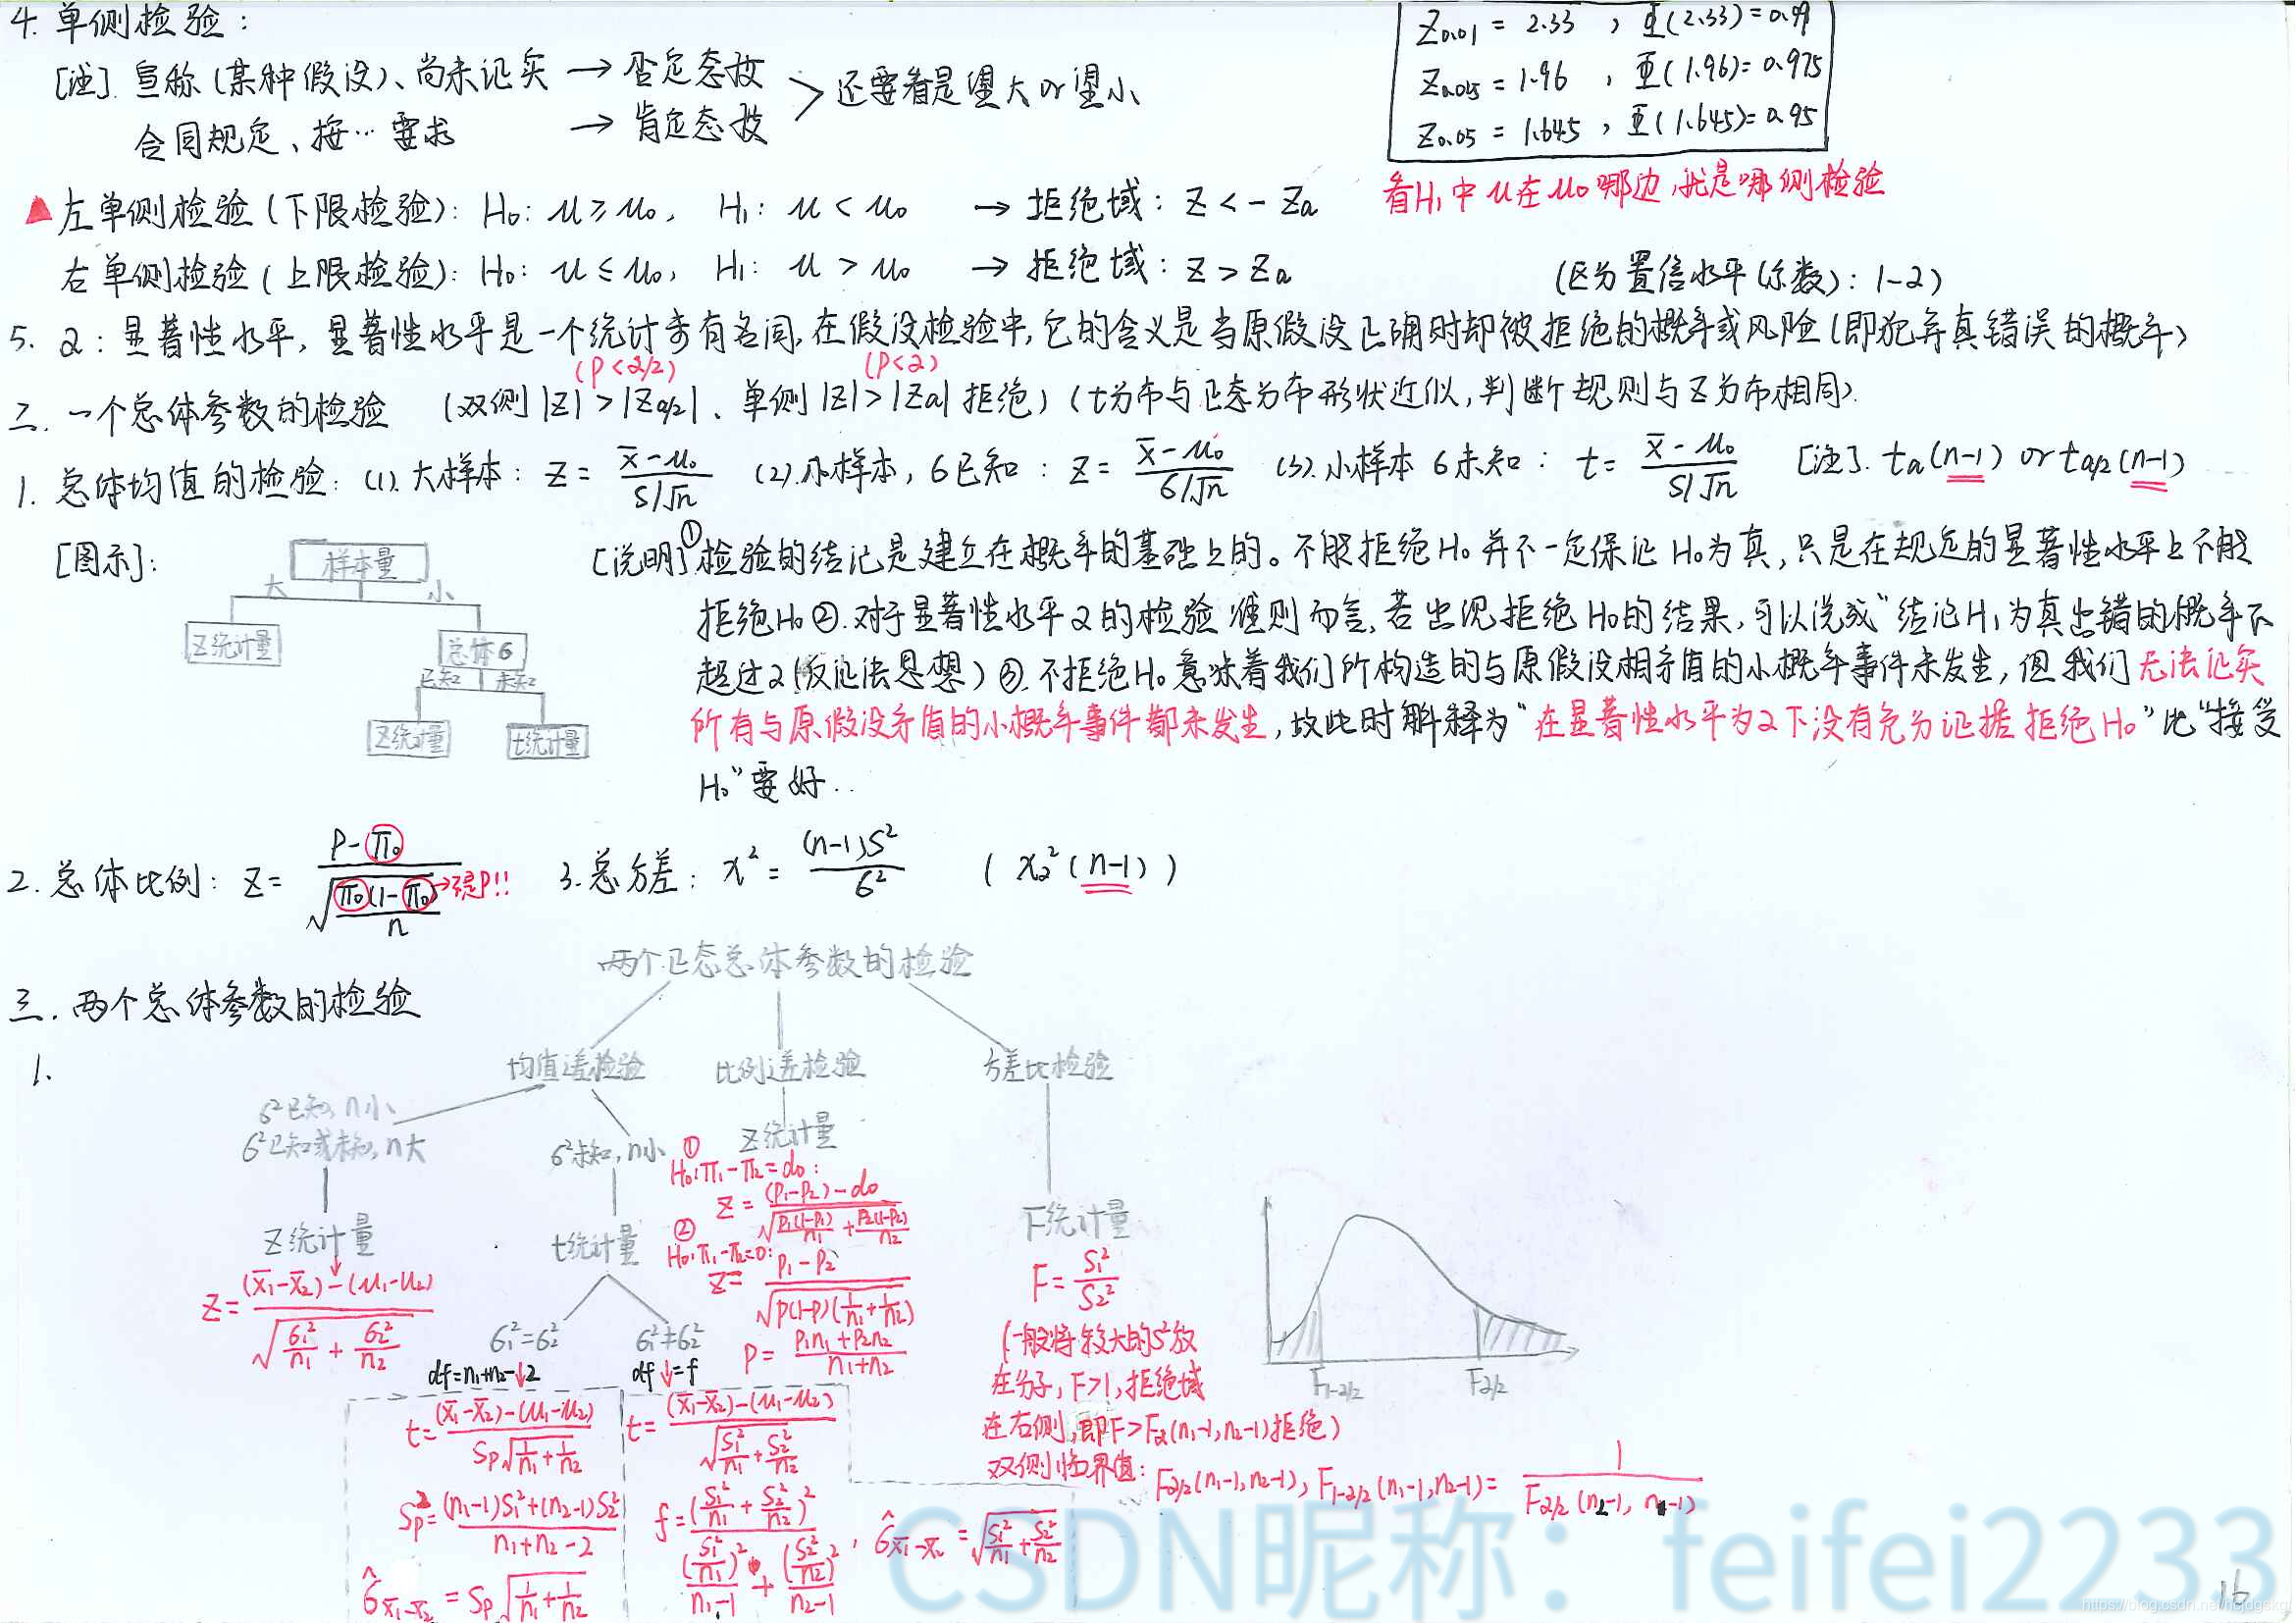 4. 单侧检验：
[注]. 宣称(某种假设)、尚未证实 → 否定态度
合同规定、按… 要求 → 肯定态度
> 还要看是望大or望小
Z0.01 = 2.33 , Φ(2.33)=0.99
Z0.025 = 1.96 , Φ(1.96)=0.975
Z0.05 = 1.645 , Φ(1.645)=0.95
看H₁中μ在μ₀哪边,就是哪侧检验
▲左单侧检验(下限检验): H₀: μ≥μ₀, H₁: μ<μ₀ → 拒绝域: Z<-Zα
右单侧检验(上限检验): H₀: μ≤μ₀, H₁: μ>μ₀ → 拒绝域: Z>Zα
(区分置信水平(系数): 1-α)
5. α: 显著性水平, 显著性水平是一个统计专有名词,在假设检验中,它的含义是当原假设正确时却被拒绝的概率或风险(即犯弃真错误的概率)
(P<α/2)
(P<α)
二. 一个总体参数的检验 (双侧|Z|>|Zα/2|、单侧|Z|>|Zα|拒绝)(t分布与正态分布形状近似,判断规则与Z分布相同).
1. 总体均值的检验: (1).大样本: Z=(x̄-μ₀)/(S/√n) (2).小样本, σ已知: Z=(x̄-μ₀)/(σ/√n) (3).小样本σ未知: t=(x̄-μ₀)/(S/√n) [注]. tα(n-1) or tα/2(n-1)
[图示]:
样本量
大 小
Z统计量 总体σ
已知 未知
Z统计量 t统计量
[说明]①检验的结论是建立在概率的基础上的。不能拒绝H₀并不一定保证H₀为真,只是在规定的显著性水平上不能
拒绝H₀②.对于显著性水平α的检验准则而言,若出现拒绝H₀的结果,可以说成“结论H₁为真出错的概率不
超过α(反证法思想)③.不拒绝H₀意味着我们所构造的与原假设相矛盾的小概率事件未发生,但我们无法证实
所有与原假设矛盾的小概率事件都未发生,故此时解释为“在显著性水平为α下没有充分证据拒绝H₀”比“接受
H₀”要好..
2. 总体比例: Z=(P-π₀)/√(π₀(1-π₀)/n) →不是P!! 3.总方差: χ²=(n-1)S²/σ² (χα²(n-1))
三. 两个总体参数的检验
两个正态总体参数的检验
1.
均值差检验 比例差检验 方差比检验
σ²已知, n小
σ²已知或未知, n大
σ²未知, n小
Z统计量
Z统计量
t统计量
F统计量
Z=((x̄₁-x̄₂)-(μ₁-μ₂))/√(σ₁²/n₁+σ₂²/n₂)
σ₁²=σ₂² σ₁²≠σ₂²
df=n₁+n₂-2 df=f
t=((x̄₁-x̄₂)-(μ₁-μ₂))/(Sp√(1/n₁+1/n₂))
Sp²=((n₁-1)S₁²+(n₂-1)S₂²)/(n₁+n₂-2)
σ̂x̄₁-x̄₂=Sp√(1/n₁+1/n₂)
t=((x̄₁-x̄₂)-(μ₁-μ₂))/√(S₁²/n₁+S₂²/n₂)
f=(S₁²/n₁+S₂²/n₂)²/((S₁²/n₁)²/(n₁-1)+(S₂²/n₂)²/(n₂-1)), σ̂x̄₁-x̄₂=√(S₁²/n₁+S₂²/n₂)
①
H₀:π₁-π₂=d₀:
Z=((P₁-P₂)-d₀)/√(P₁(1-P₁)/n₁+P₂(1-P₂)/n₂)
②
H₀:π₁-π₂=0:
Z=(P₁-P₂)/√(P(1-P)(1/n₁+1/n₂))
P=(P₁n₁+P₂n₂)/(n₁+n₂)
F=S₁²/S₂²
(一般将较大的S²放
在分子, F>1, 拒绝域
在右侧,即F>Fα(n₁-1,n₂-1)拒绝)
双侧临界值: Fα/2(n₁-1,n₂-1), F1-α/2(n₁-1,n₂-1)=1/Fα/2(n₂-1, n₁-1)
F1-α/2 Fα/2
CSDN昵称：feifei2233
16